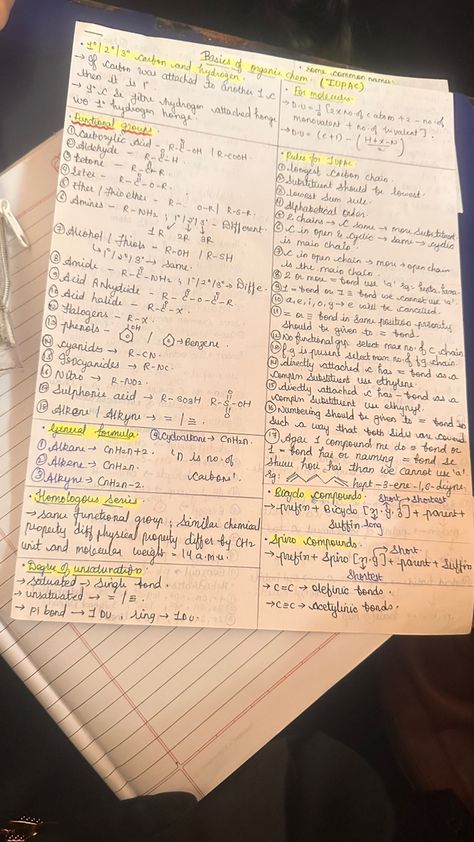 Basics of organic chem. (IUPAC)
• 1°/2°/3° carbon and hydrogen.
→ If carbon was attached to another 1 c
then it is 1°
→ 1° C se jitne hydrogen attached honge
wo 1° hydrogen honge.
• Functional groups:
① Carboxylic Acid → R-C-OH / R-COOH.
② Aldehyde → R-C-H.
③ Ketone → R-C-R
④ Ester → R-C-O-R.
⑤ Ether / Thioether → R-O-R / R-S-R.
⑥ Amines → R-NH2, 1°/2°/3° Different.
1R 2R 3R
⑦ Alcohol / Thiols → R-OH / R-SH
1°/2°/3° → same.
⑧ Amide → R-C-NH2, 1°/2°/3° → Diffe.
⑨ Acid Anhydride → R-C-O-C-R.
⑩ Acid halide → R-C-X.
⑪ Halogens → R-X.
⑫ phenols → OH / → Benzene.
cyanids → R-CN.
Isocyanides → R-NC.
Nitro → R-NO2.
Sulphonic acid → R-SO3H R-S-OH
Alkene / Alkyne → = / ≡.
• General formula:
① Alkane → CnH2n+2.
② Alkene → CnH2n.
③ Alkyne → CnH2n-2.
④ Cycloalkane → CnH2n.
'n is no. of
Carbons'.
• Homologous Series:
→ same functional group, similar chemical
property diff physical property differ by CH2
unit and molecular weight = 14 a.m.u.
• Degree of unsaturation:
→ saturated → single bond.
→ unsaturated → = / ≡.
→ pi bond → 1 DU, ring → 1 DU.
• Some common names:
• For molecules:
→ D.U = ½ [2 x no. of c atoms + 2 - no. of
monovalent + no. of trivalent].
→ D.U = (C+1) - (H+X-N / 2)
• Rules for IUPAC:
① Longest carbon chain.
② Substituent should be lowest.
③ Lowest sum rule.
④ Alphabetical order.
⑤ 2 chains → C same → more substituent
⑥ C in open & cyclic → same → cyclic
is main chain.
⑦ C in open chain → more → open chain
is the main chain.
⑧ 2 or more = bond use 'a' eg:- hepta, hexa.
⑨ 1 = bond or 1 ≡ bond we cannot use 'a'.
⑩ a, e, i, o, y → e will be cancelled.
⑪ = or ≡ bond in same position priority
should be given to = bond.
⑫ No functional grp. select max no. of C chain
⑬ f.g is present select max no. of f.g chain.
⑭ directly attached C has = bond as a
complex substituent use ethylene.
⑮ directly attached C has - bond as a
complex substituent use ethynyl.
⑯ Numbering should be given to = bond in
such a way that both sides are covered
⑰ Agar 1 compound me do = bond or
1 ≡ bond hai or naming = bond se
hui hai than we cannot use 'a'.
Eg: hept-3-ene-1,6-diyne.
• Bicyclo compounds: short → shortest
→ prefix + Bicyclo [x.y.z] + parent +
Suffix long
• Spiro compounds:
→ short.
→ prefix + Spiro [x.y] + parent + Suffix
Shortest
→ C=C → olefinic bonds.
→ C≡C → Acetylinic bonds.